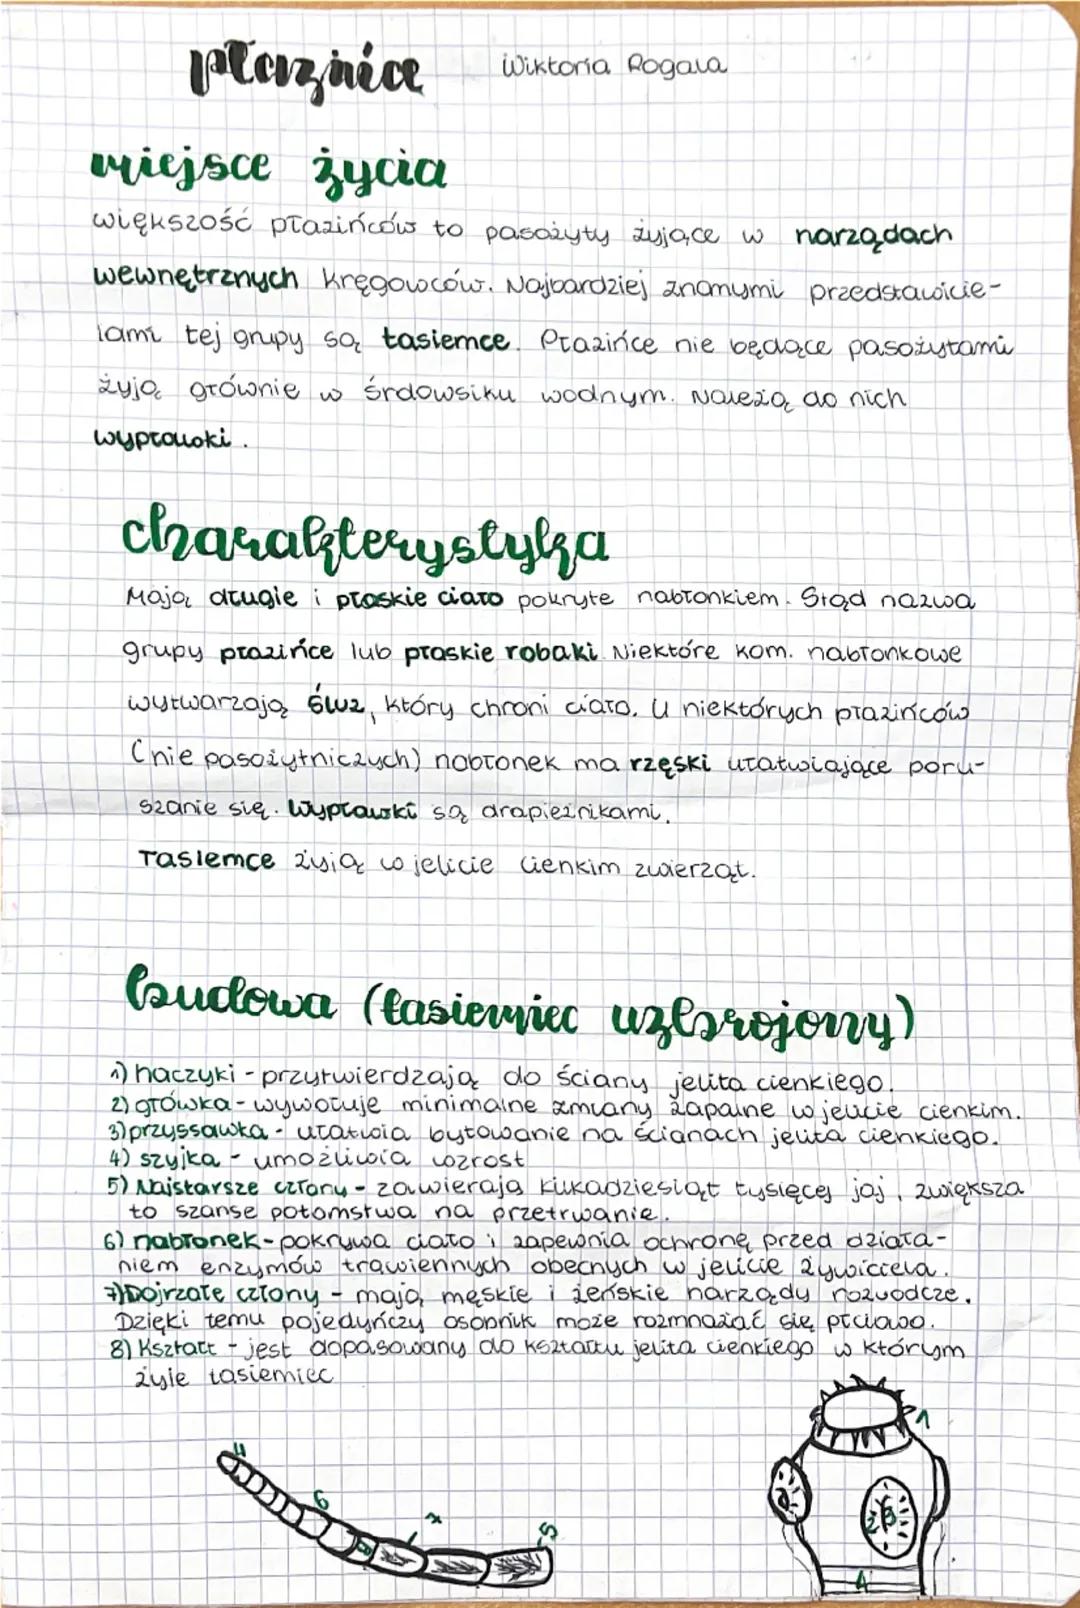 płazińce Wiktoria Rogala
miejsce życia
większość płazińców to pasożyty żyjące w narządach
wewnętrznych kręgowców. Najbardziej znanymi przedstawicie-
lami tej grupy są tasiemce. Płazińce nie będące pasożytami
żyją głównie w śrdowsiku wodnym. Należą do nich
wypławki.
charakterystyka
Mają długie i płaskie ciało pokryte nabłonkiem. Stąd nazwa
grupy płazińce lub płaskie robaki. Niektóre kom. nabłonkowe
wytwarzają śluz, który chroni ciało. U niektórych płazińców
(nie pasożytniczych) nabłonek ma rzęski ułatwiające poru-
szanie się. Wypławski są drapieżnikami.
Tasiemce żyją w jelicie cienkim zwierząt.
budowa (tasiemiec uzbrojony)
1) haczyki - przytwierdzają do ściany jelita cienkiego.
2) główka - wywołuje minimalne zmiany zapalne w jelicie cienkim.
3) przyssawka - ułatwia bytowanie na ścianach jelita cienkiego.
4) szyjka - umożliwia wzrost
5) Najstarsze człony - zawierają kilkadziesiąt tysięcy jaj, zwiększa
to szanse potomstwa na przetrwanie.
6) nabłonek - pokrywa ciało i zapewnia ochronę przed działa-
niem enzymów trawiennych obecnych w jelicie żywiciela.
7) Dojrzałe człony - mają męskie i żeńskie narządy rozrodcze.
Dzięki temu pojedyńczy osobnik może rozmnażać się płciowo.
8) Kształt - jest dopasowany do kształtu jelita cienkiego w którym
żyje tasiemiec
1
4
6
7
2
2
3
5
8
4